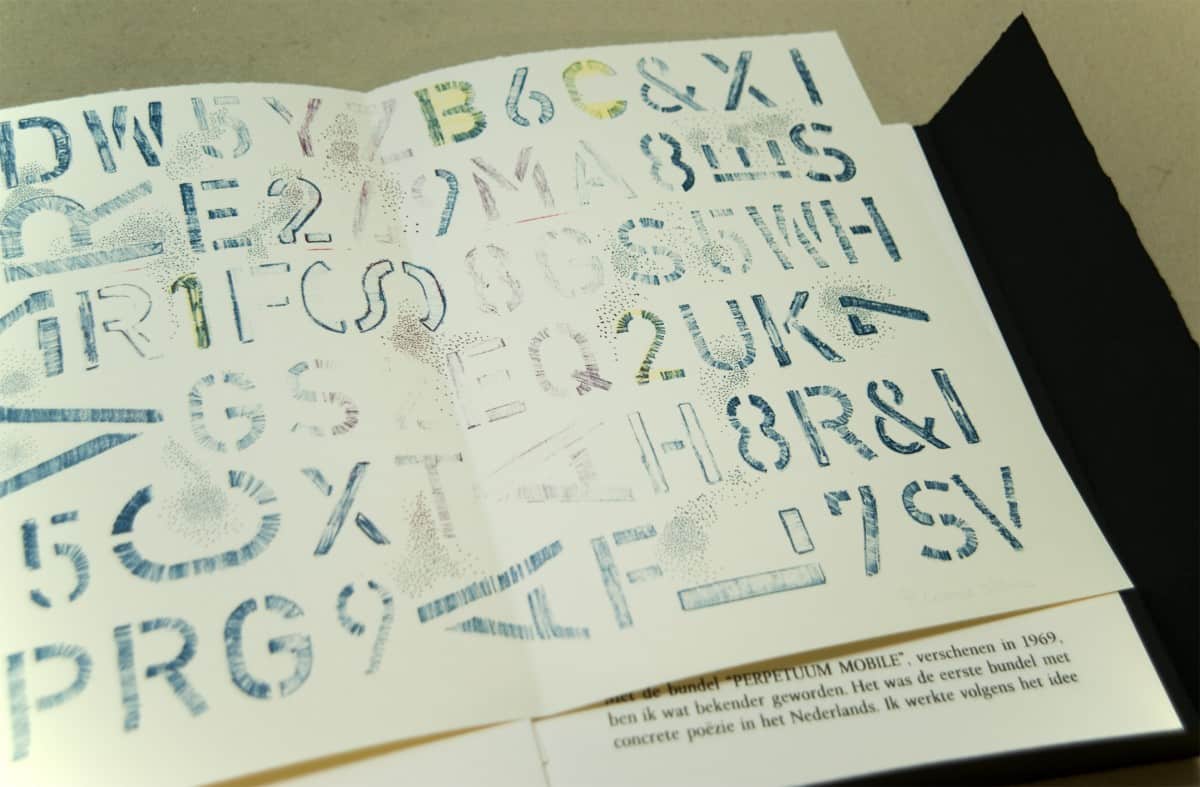 DW5YZB6C&XI
RE2Z9MA8ES
1R1FOSO8GS5WH
GS EQ2UK
5OXT AH8R&I
PRG9AFL7SV
met de bundel "PERPETUUM MOBILE", verschenen in 1969,
ben ik wat bekender geworden. Het was de eerste bundel met
concrete poëzie in het Nederlands. Ik werkte volgens het idee